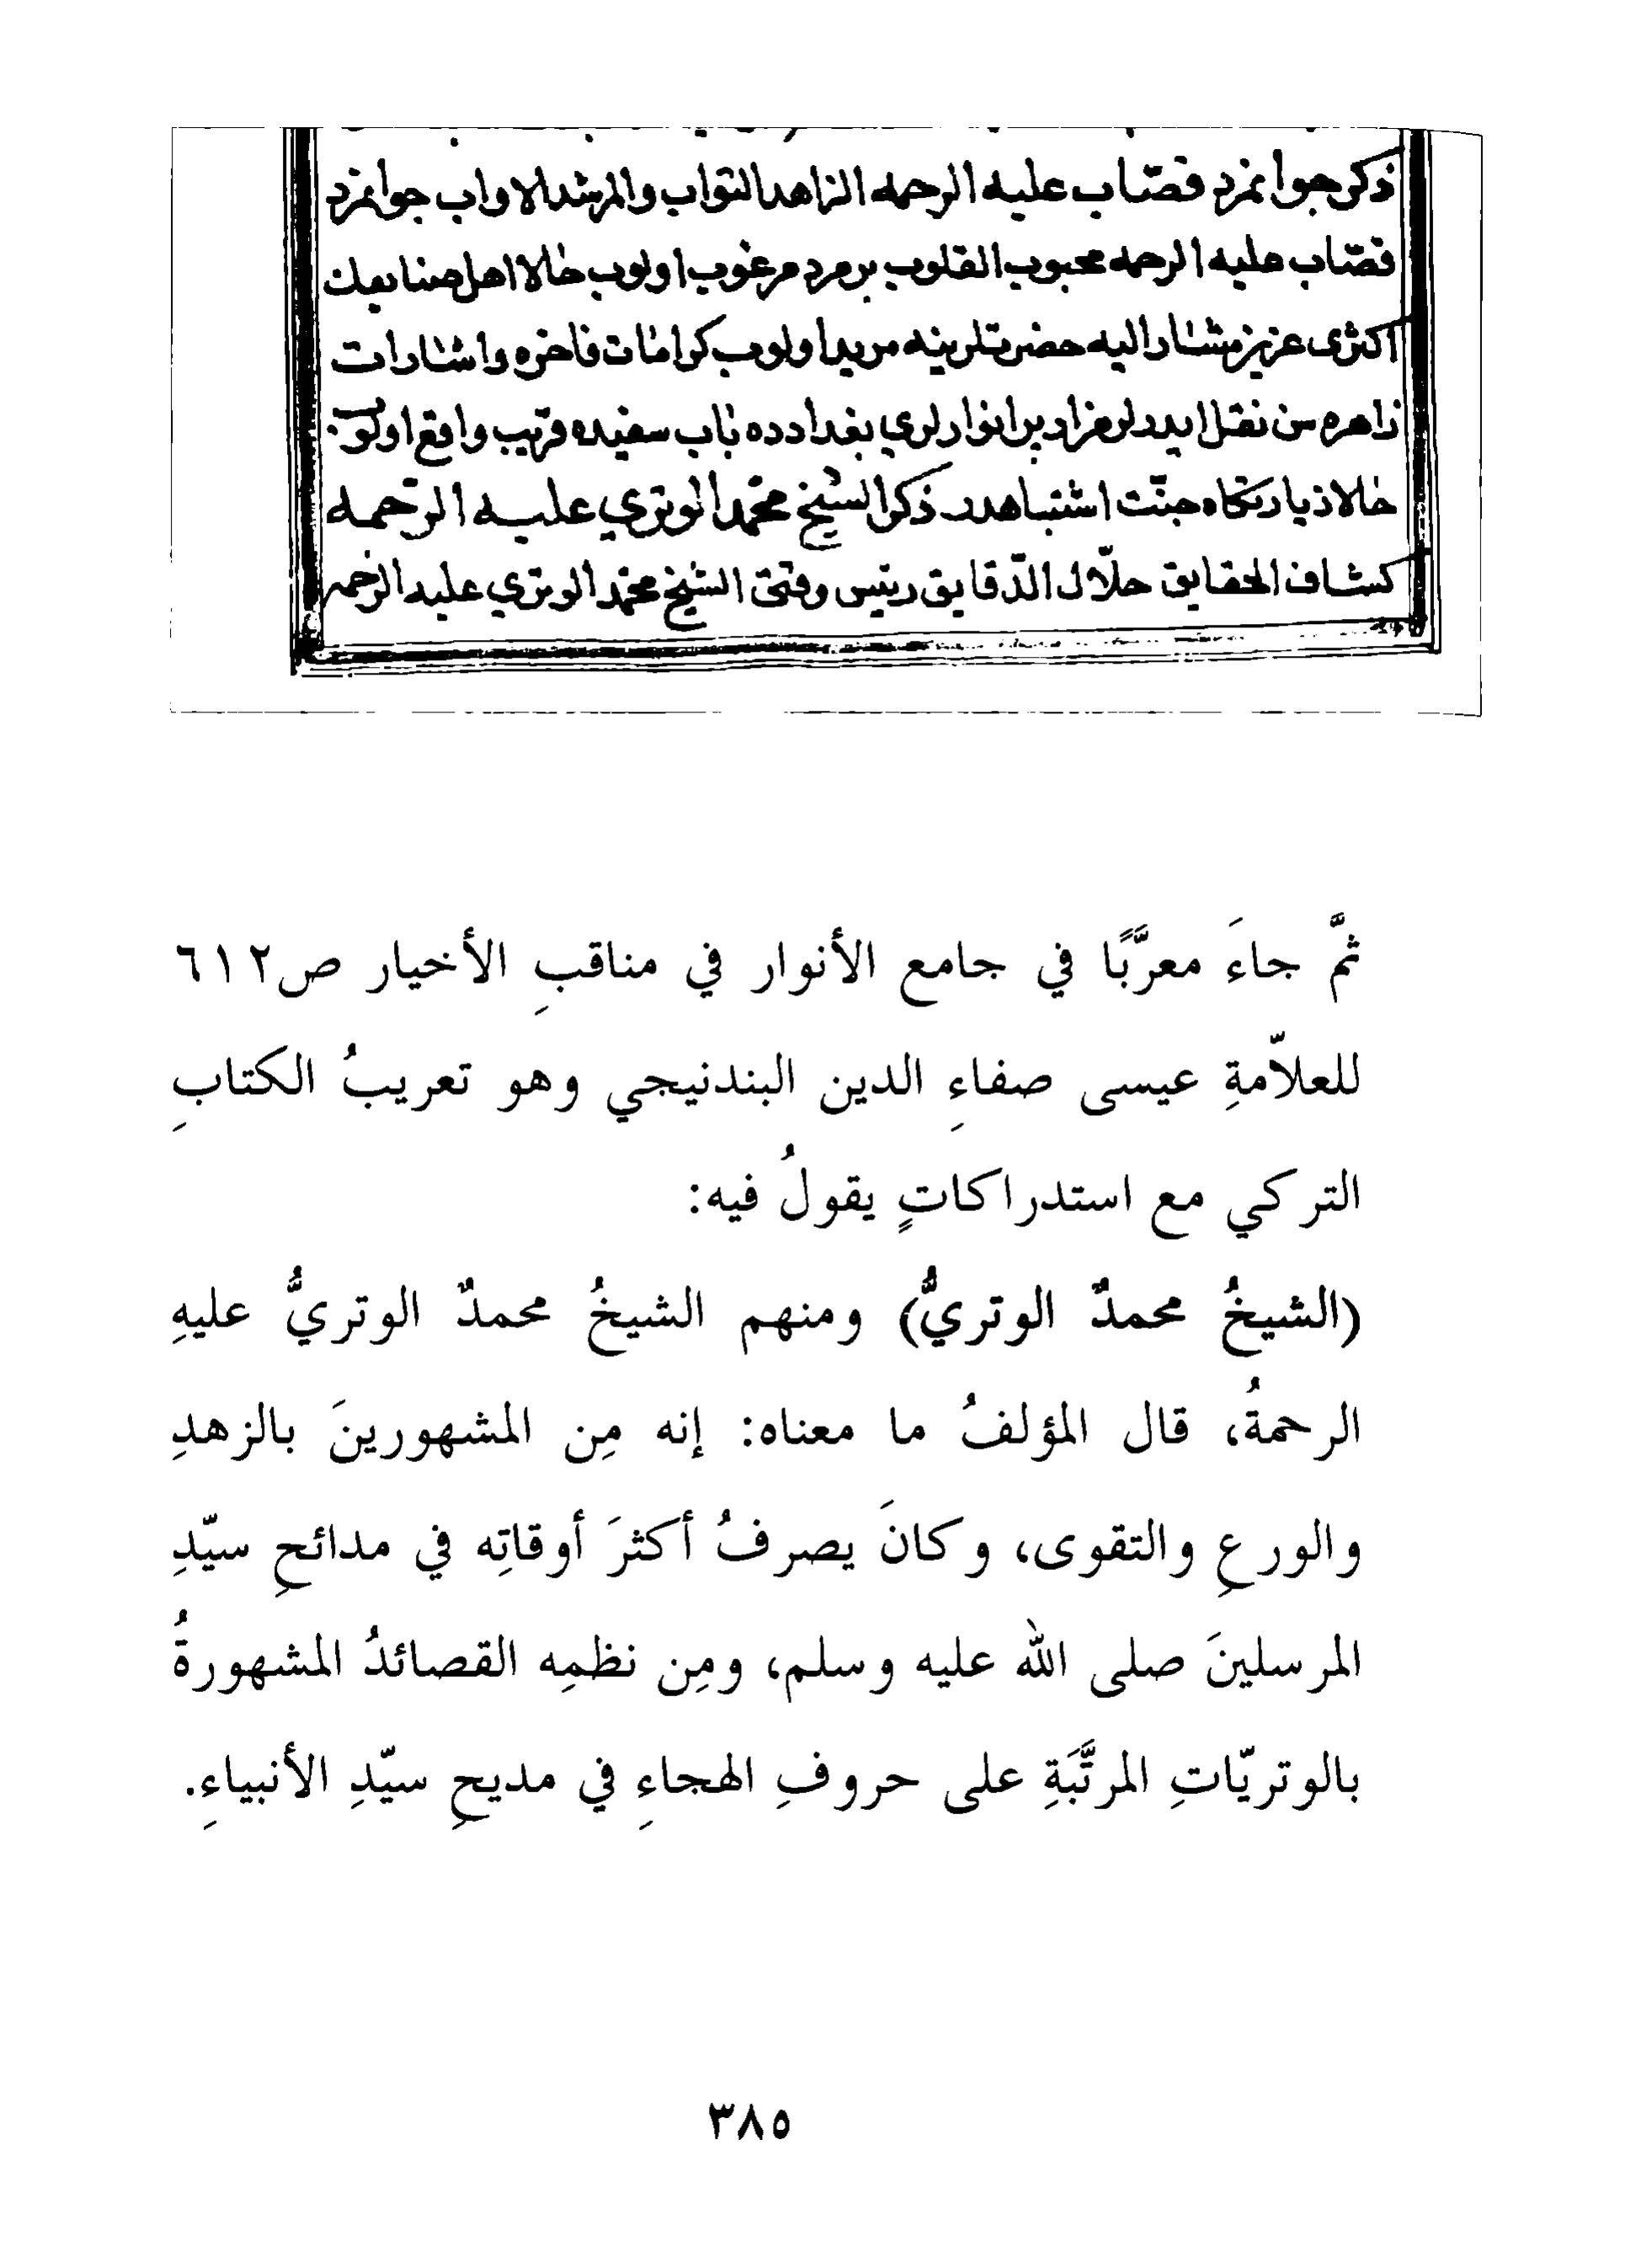 ذكر جوانمرد قصّاب عليه الرحمه الزاهد التواب والمرشد الاواب جوانمرد
قصّاب عليه الرحمه محبوب القلوب بر مرد مرغوب اولوب حالا اهل صنايعك
اكثرى عزيز مشار اليه حضرتلرينه مريد اولوب كرامات فاخره واشارات
زاهره سن نقل ايدرلر مزار بر انوارلري بغدادده باب سفيده قريب واقع اولوب
حالا زيارتكاه جنّت اشتباهدر ذكر الشيخ محمّد الوتري عليه الرّحمه
كشاف الحقايق حلّال الدّقايق رئيس وقتى الشيخ محمّد الوتري عليه الرحمه
ثمَّ جاءَ معرَّبًا في جامع الأنوار في مناقبِ الأخيار ص٦١٢
للعلاّمةِ عيسى صفاءِ الدين البندنيجي وهو تعريبُ الكتابِ
التركي مع استدراكاتٍ يقولُ فيه:
(الشيخُ محمدٌ الوتريُّ) ومنهم الشيخُ محمدٌ الوتريُّ عليهِ
الرحمةُ، قال المؤلفُ ما معناه: إنه مِن المشهورينَ بالزهدِ
والورعِ والتقوى، وكانَ يصرفُ أكثرَ أوقاتِه في مدائحِ سيّدِ
المرسلينَ صلى الله عليه وسلم، ومِن نظمِه القصائدُ المشهورةُ
بالوتريّاتِ المرتَّبَةِ على حروفِ الهجاءِ في مديحِ سيّدِ الأنبياءِ.
٣٨٥